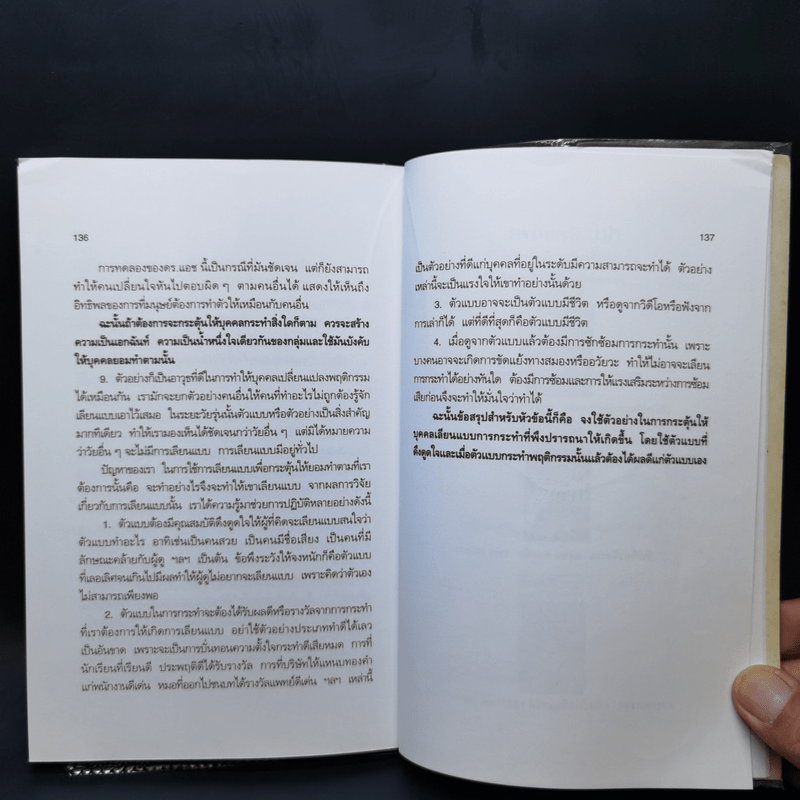 136
การทดลองของดร.แอช นี้เป็นกรณีที่มันชัดเจน แต่ก็ยังสามารถ
ทำให้คนเปลี่ยนใจหันไปตอบผิด ๆ ตามคนอื่นได้ แสดงให้เห็นถึง
อิทธิพลของการที่มนุษย์ต้องการทำตัวให้เหมือนกับคนอื่น
ฉะนั้นถ้าต้องการจะกระตุ้นให้บุคคลกระทำสิ่งใดก็ตาม ควรจะสร้าง
ความเป็นเอกฉันท์ ความเป็นน้ำหนึ่งใจเดียวกันของกลุ่มและใช้มันบังคับ
ให้บุคคลยอมทำตามนั้น
9. ตัวอย่างก็เป็นอาวุธที่ดีในการทำให้บุคคลเปลี่ยนแปลงพฤติกรรม
ได้เหมือนกัน เรามักจะยกตัวอย่างคนอื่นให้คนที่ทำอะไรไม่ถูกต้องรู้จัก
เลียนแบบเอาไว้เสมอ ในระยะวัยรุ่นนั้นตัวแบบหรือตัวอย่างเป็นสิ่งสำคัญ
มากทีเดียว ทำให้เรามองเห็นได้ชัดเจนกว่าวัยอื่น ๆ แต่มิได้หมายความ
ว่าวัยอื่น ๆ จะไม่มีการเลียนแบบ การเลียนแบบมีอยู่ทั่วไป
ปัญหาของเรา ในการใช้การเลียนแบบเพื่อกระตุ้นให้ยอมทำตามที่เรา
ต้องการนั้นคือ จะทำอย่างไรจึงจะทำให้เขาเลียนแบบ จากผลการวิจัย
เกี่ยวกับการเลียนแบบนั้น เราได้ความรู้มาช่วยการปฏิบัติหลายอย่างดังนี้
1. ตัวแบบต้องมีคุณสมบัติดึงดูดใจให้ผู้ที่คิดจะเลียนแบบสนใจว่า
ตัวแบบทำอะไร อาทิเช่นเป็นคนสวย เป็นคนมีชื่อเสียง เป็นคนที่มี
ลักษณะคล้ายกับผู้ดู ฯลฯ เป็นต้น ข้อพึงระวังให้จงหนักก็คือตัวแบบ
ที่เลอเลิศจนเกินไปมีผลทำให้ผู้ดูไม่อยากจะเลียนแบบ เพราะคิดว่าตัวเอง
ไม่สามารถเพียงพอ
2. ตัวแบบในการกระทำจะต้องได้รับผลดีหรือรางวัลจากการกระทำ
ที่เราต้องการให้เกิดการเลียนแบบ อย่าใช้ตัวอย่างประเภททำดีได้เลว
เป็นอันขาด เพราะจะเป็นการบั่นทอนความตั้งใจกระทำดีเสียหมด การที่
นักเรียนที่เรียนดี ประพฤติดีได้รับรางวัล การที่บริษัทให้แหนบทองคำ
แก่พนักงานดีเด่น หมอที่ออกไปชนบทได้รางวัลแพทย์ดีเด่น ฯลฯ เหล่านี้
137
เป็นตัวอย่างที่ดีแก่บุคคลที่อยู่ในระดับมีความสามารถจะทำได้ ตัวอย่าง
เหล่านี้จะเป็นแรงใจให้เขาทำอย่างนั้นด้วย
3. ตัวแบบอาจจะเป็นตัวแบบมีชีวิต หรือดูจากวิดีโอหรือฟังจาก
การเล่าก็ได้ แต่ที่ดีที่สุดก็คือตัวแบบมีชีวิต
4. เมื่อดูจากตัวแบบแล้วต้องมีการซักซ้อมการกระทำนั้น เพราะ
บางคนอาจจะเกิดการขัดแย้งทางสมองหรืออวัยวะ ทำให้ไม่อาจจะเลียน
การกระทำได้อย่างทันใด ต้องมีการซ้อมและการให้แรงเสริมระหว่างการซ้อม
เสียก่อนจึงจะทำให้มั่นใจว่าทำได้
ฉะนั้นข้อสรุปสำหรับหัวข้อนี้ก็คือ จงใช้ตัวอย่างในการกระตุ้นให้
บุคคลเลียนแบบการกระทำที่พึงปรารถนาให้เกิดขึ้น โดยใช้ตัวแบบที่
ดึงดูดใจและเมื่อตัวแบบกระทำพฤติกรรมนั้นแล้วต้องได้ผลดีแก่ตัวแบบเอง